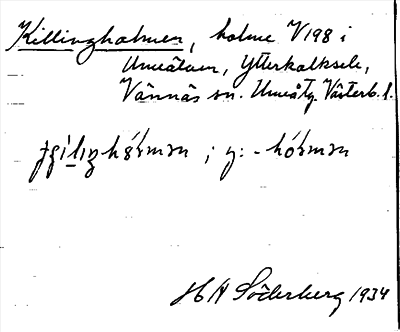 Killingholmen, holme V198 i
Umeälven, Ytterkalksele,
Vännäs sn. Umeåtg. Västerb. l.
; y: -
H A Söderberg 1934